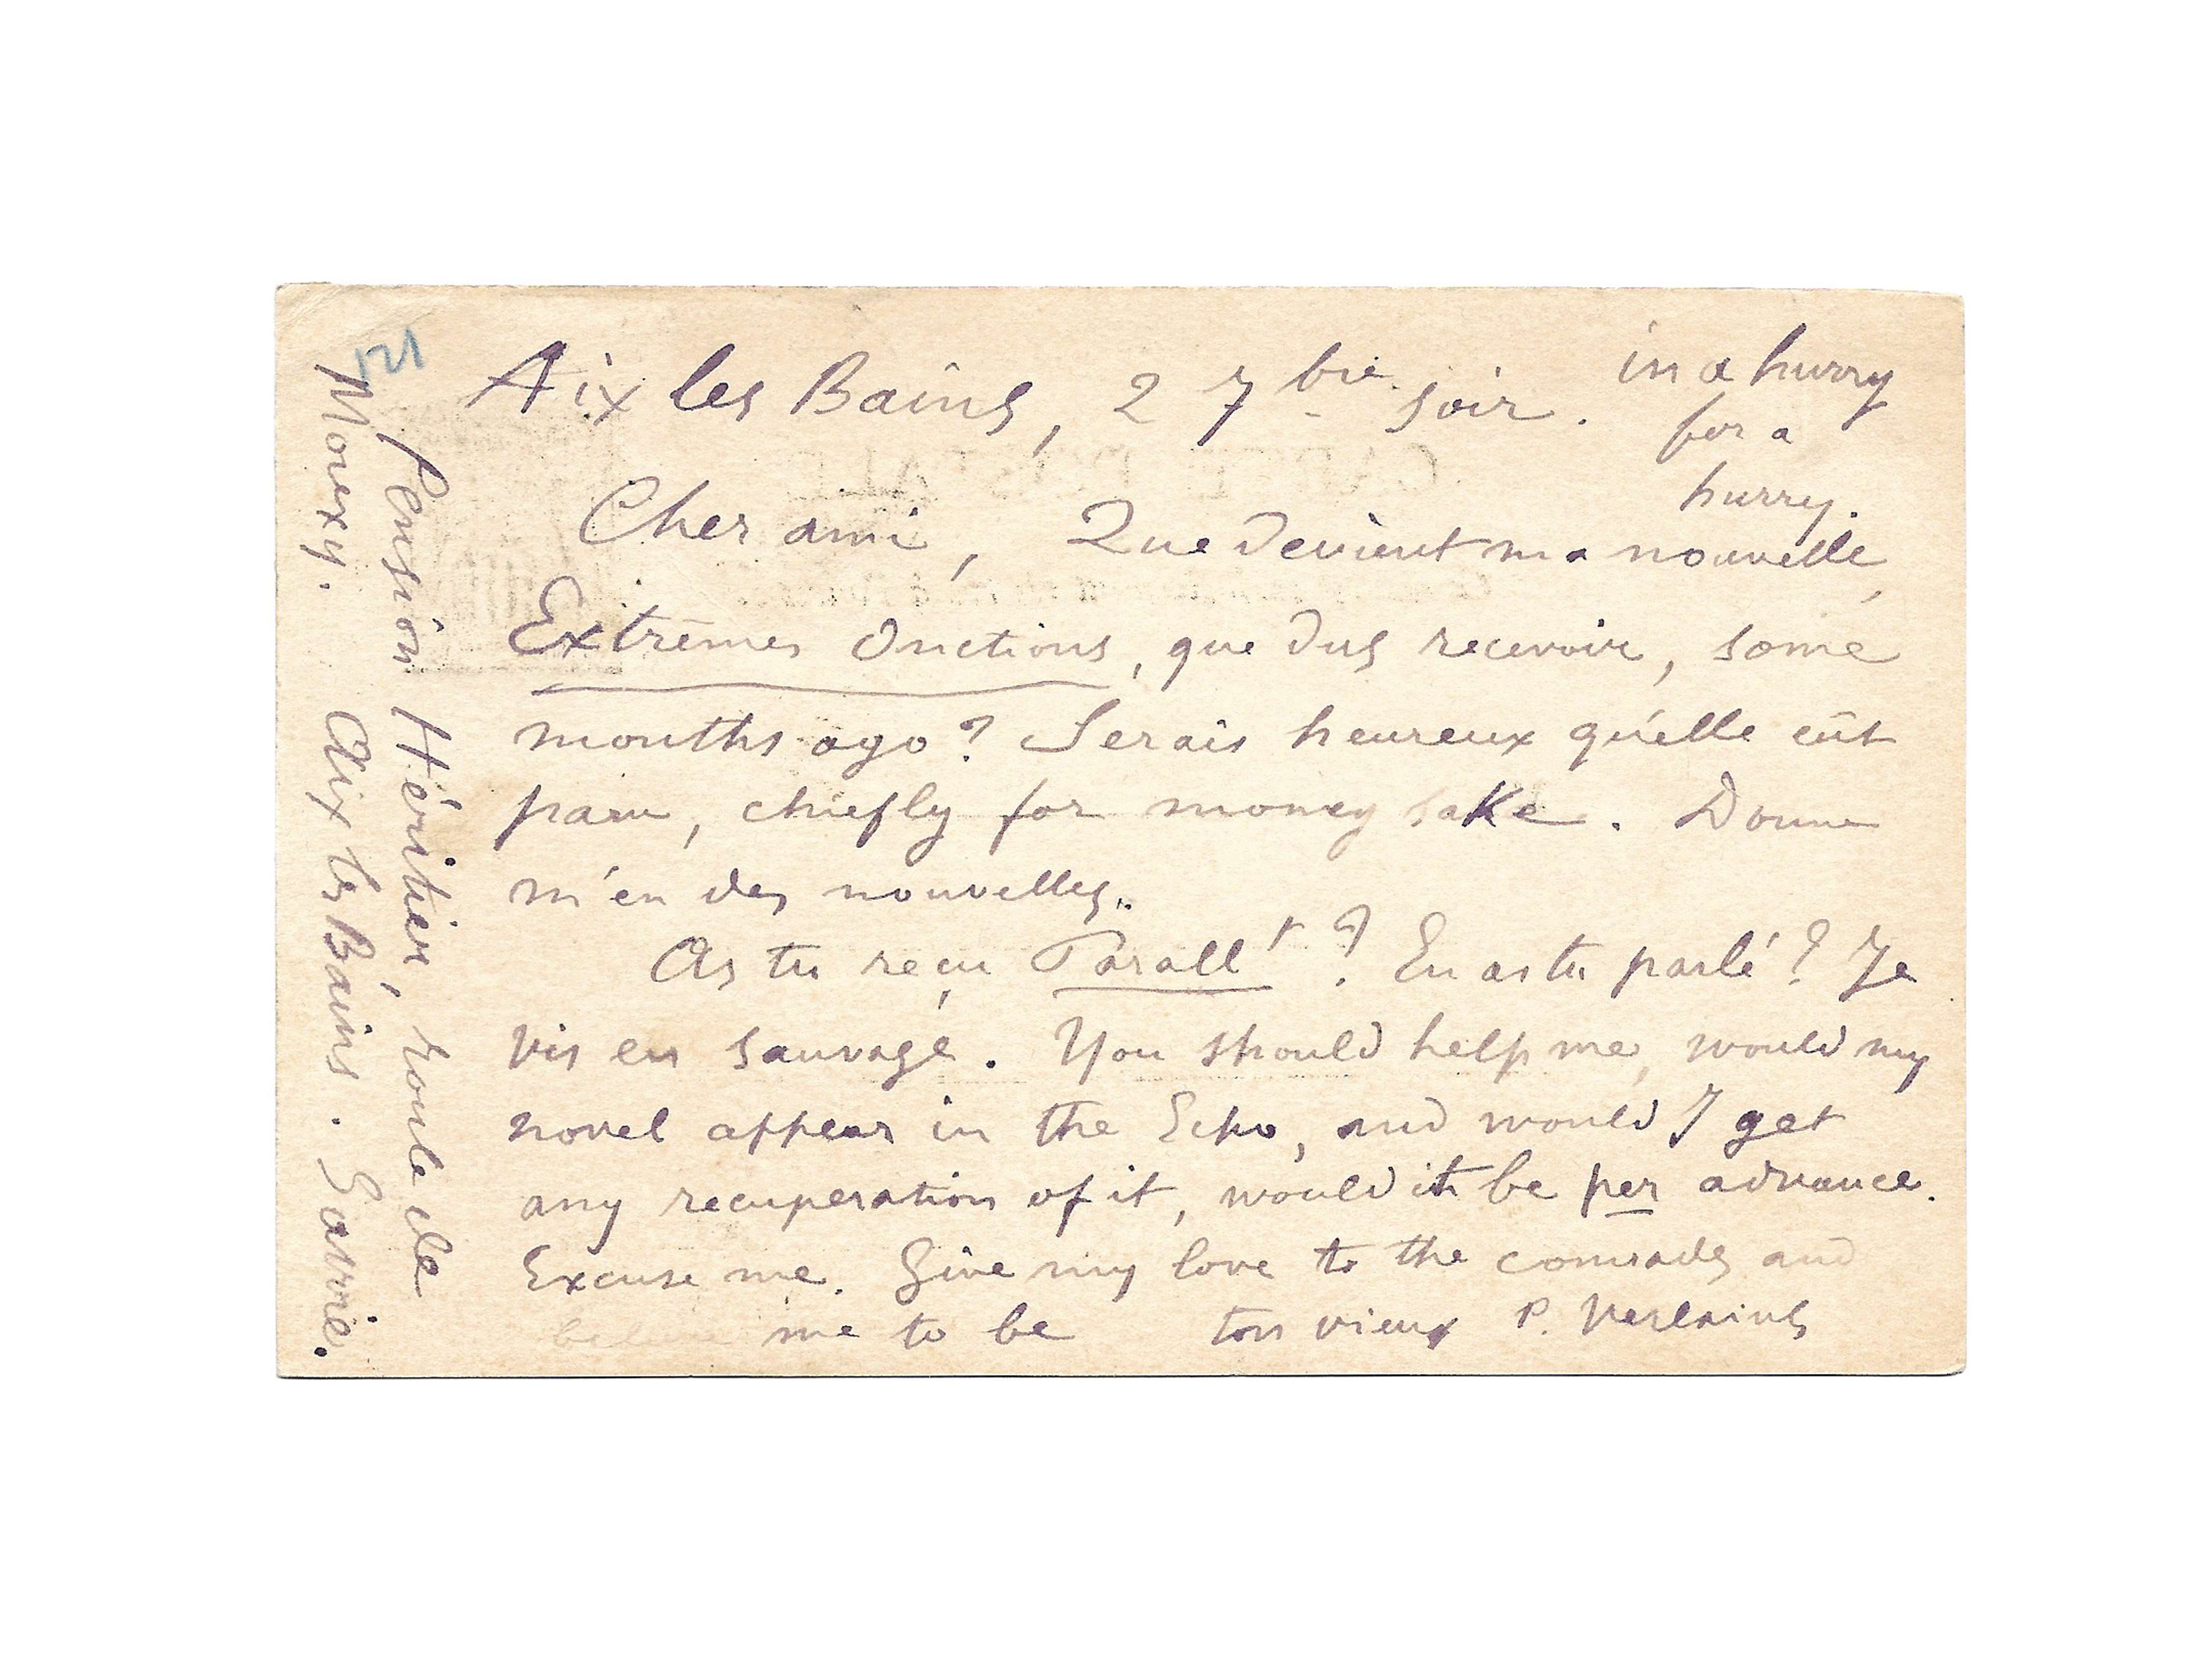 121
Aix les Bains, 2 7bre soir. in a hurry
for a
hurry.
Cher ami, Que devient ma nouvelle,
Extrêmes Onctions, que dus recevoir, some
months ago? Serais heureux qu'elle eût
paru, chiefly for money sake. Donne
m'en des nouvelles.
As tu reçu Parallt? En as tu parlé? Je
vis en sauvage. You should help me, would my
novel appear in the Echo, and would I get
any recuperation of it, would it be per advance.
Excuse me. Give my love to the comrads and
believe me to be ton vieux P. Verlaine
Pension Héritier, route de
Mouxy. Aix les Bains. Savoie.